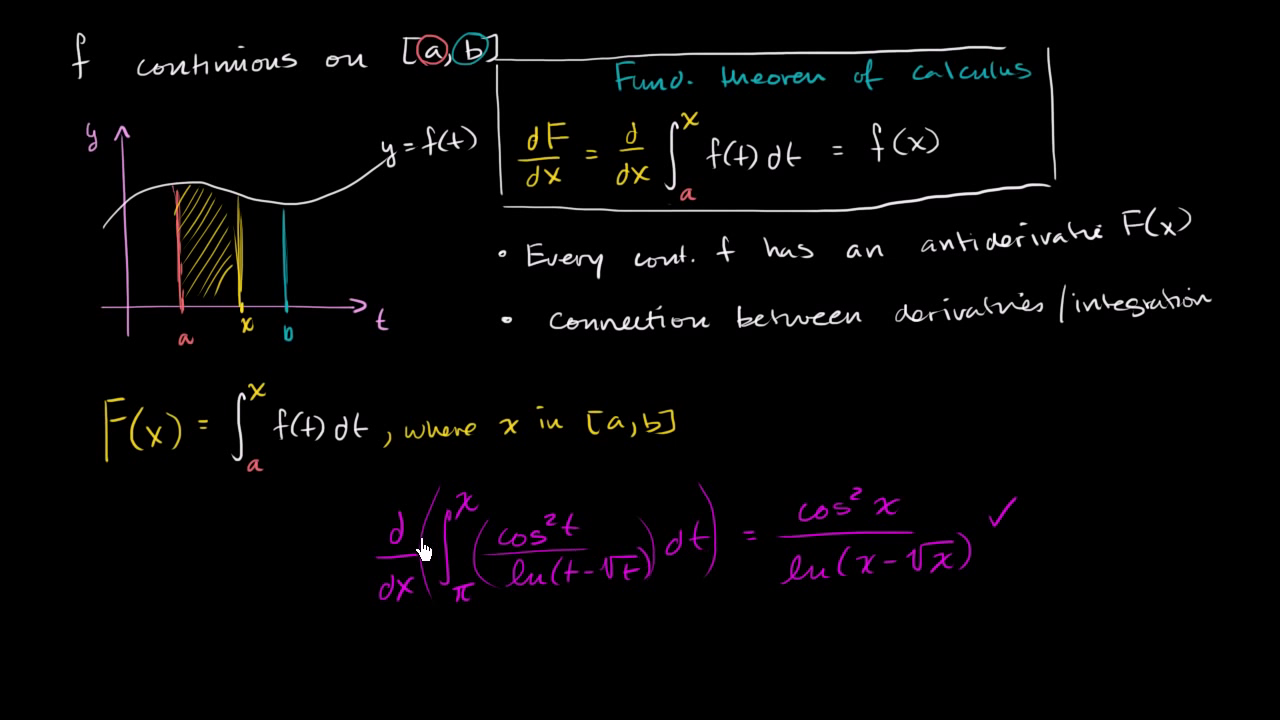 f continuous on [a, b]
Fund. theorem of calculus
dF/dx = d/dx ∫_a^x f(t) dt = f(x)
y
y = f(t)
a
x
b
t
• Every cont. f has an antiderivative F(x)
• connection between derivatives/integration
F(x) = ∫_a^x f(t) dt, where x in [a, b]
d/dx (∫_π^x (cos²t / ln(t-√t)) dt) = cos²x / ln(x-√x) ✓